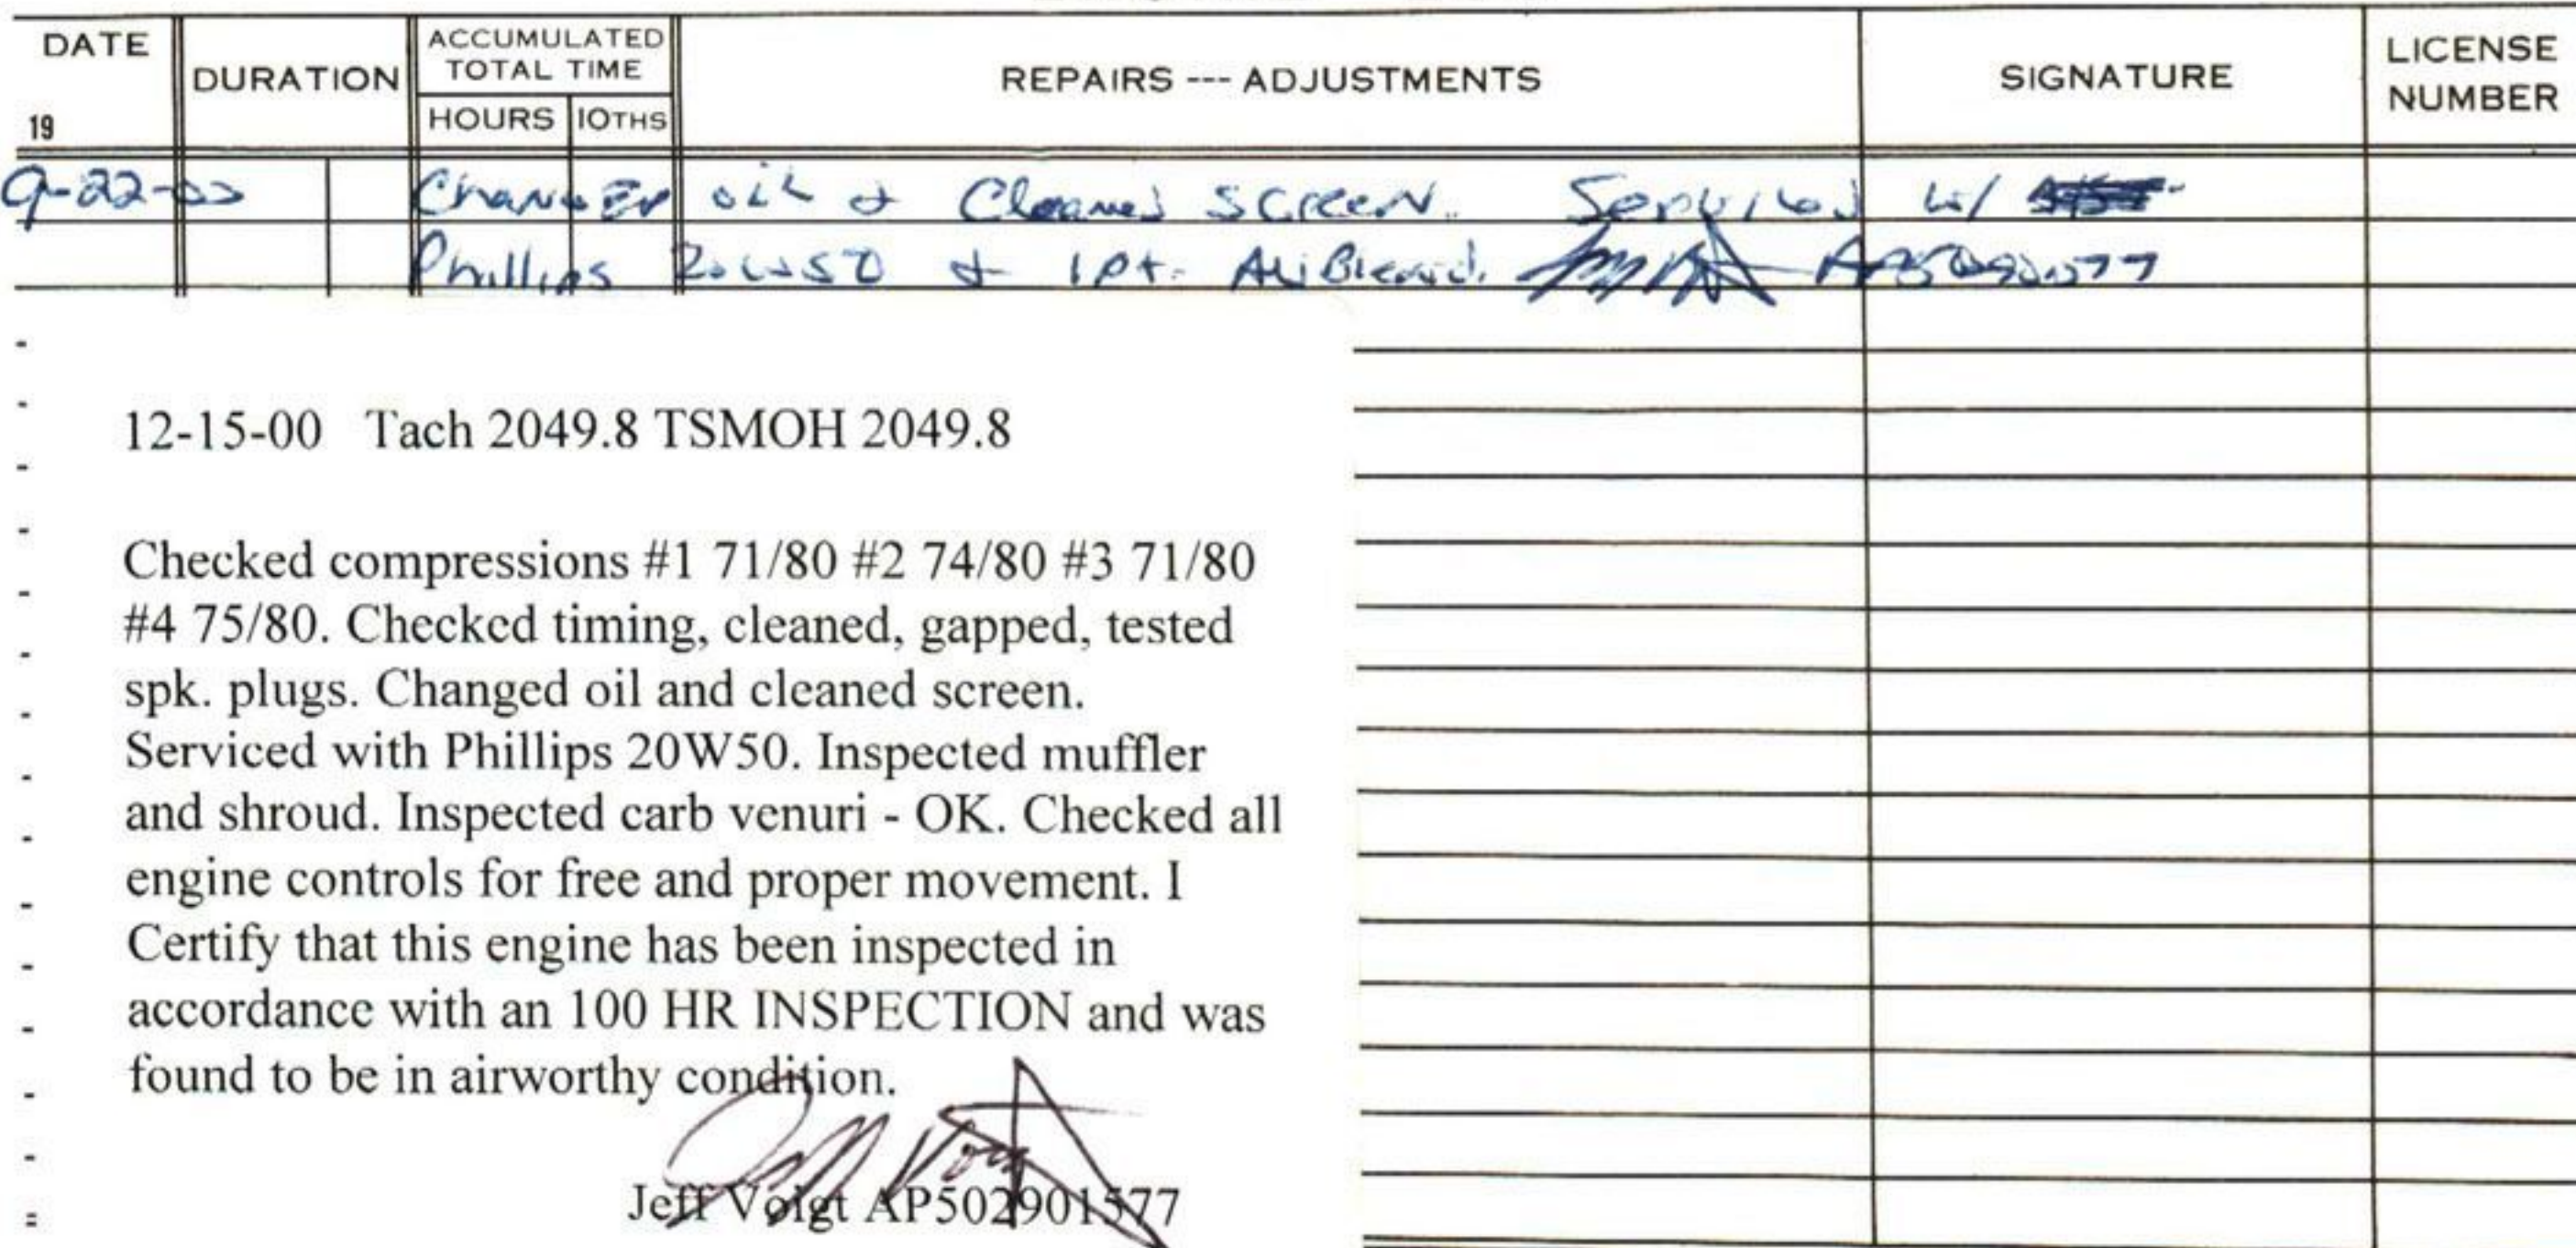 DATE
19
DURATION
ACCUMULATED
TOTAL TIME
HOURS 10THS
REPAIRS --- ADJUSTMENTS
SIGNATURE
LICENSE
NUMBER
9-22-00 Changed oil & Cleaned screen. Serviced w/
Phillips 20W50 & 1 pt. AviBlend.
12-15-00 Tach 2049.8 TSMOH 2049.8
Checked compressions #1 71/80 #2 74/80 #3 71/80
#4 75/80. Checked timing, cleaned, gapped, tested
spk. plugs. Changed oil and cleaned screen.
Serviced with Phillips 20W50. Inspected muffler
and shroud. Inspected carb venuri - OK. Checked all
engine controls for free and proper movement. I
Certify that this engine has been inspected in
accordance with an 100 HR INSPECTION and was
found to be in airworthy condition.
Jeff Voigt AP502901577